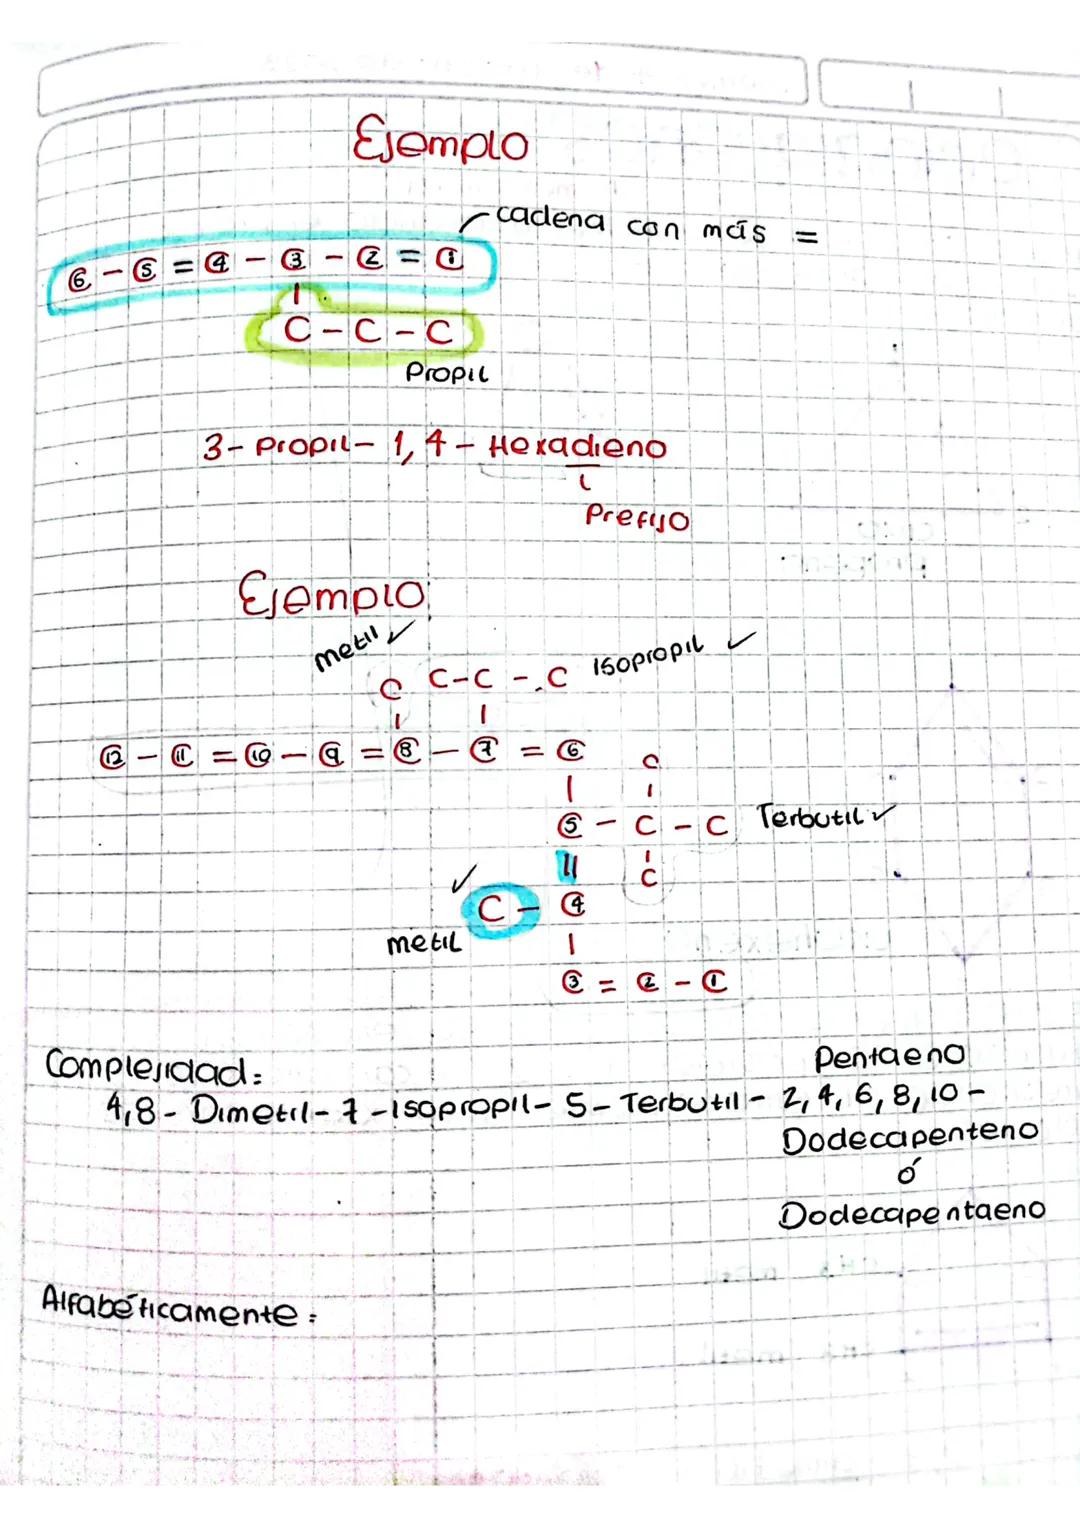 Ejemplo
cadena con más =
6 - 5 = 4 - 3 - 2 = 1
C - C - C
Propil
3- Propil- 1,4- Hexadieno
Prefijo
Ejemplo
metil ✓
C C-C - C Isopropil ✓
12 - 11 = 10 - 9 = 8 - 7 = 6 C
5 - C - C Terbutil ✓
✓ || C
C - 4
metil
3 = 2 - 1
Complejidad:
Pentaeno
4,8- Dimetil- 7-Isopropil- 5-Terbutil- 2,4,6,8,10-
Dodecapenteno
ó
Dodecapentaeno
Alfabéticamente: